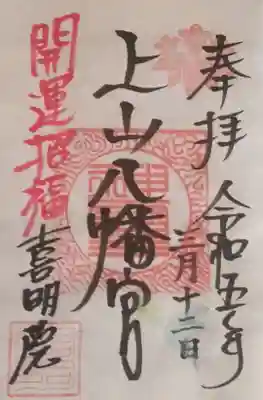 奉拝
令和五年
三月十二日
上山八幡宮
開運招福